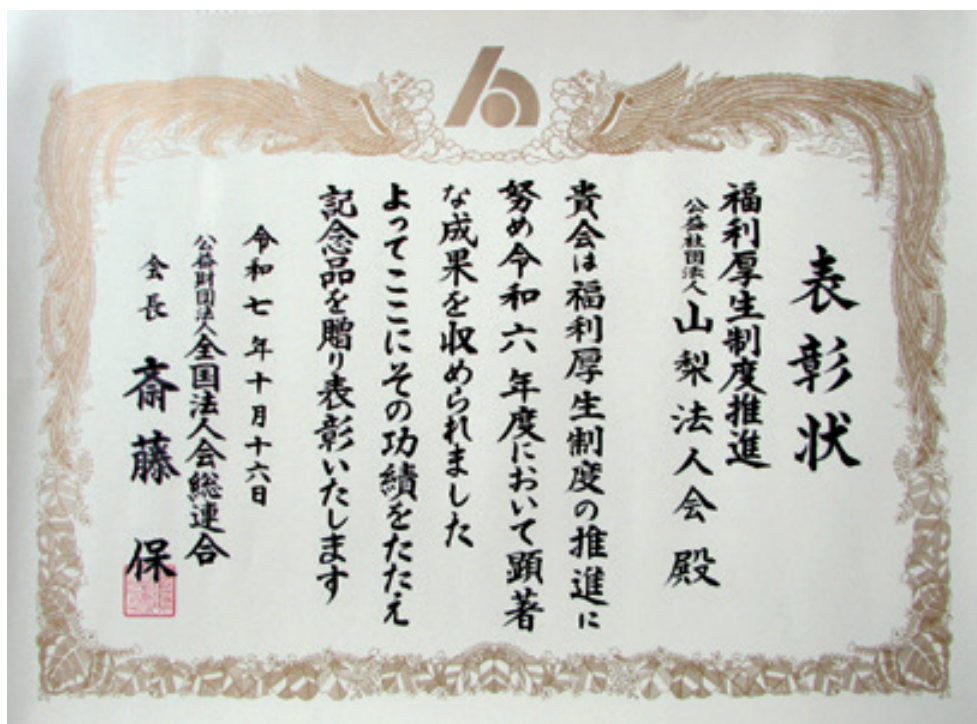 表彰状
福利厚生制度推進
公益社団法人 山梨法人会 殿
貴会は福利厚生制度の推進に
努め令和六年度において顕著
な成果を収められました
よってここにその功績をたたえ
記念品を贈り表彰いたします
令和七年十月十六日
公益財団法人 全国法人会総連合
会長 斎藤 保